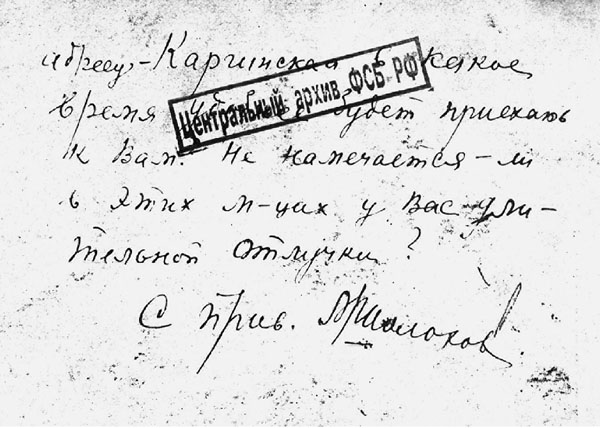 адресу-Каргинская в какое
Центральный архив ФСБ РФ
время будет приехать
к Вам. Не намечается-ли
в этих м-цах у Вас дли-
тельной отлучки?
С прив. М Шолохов.